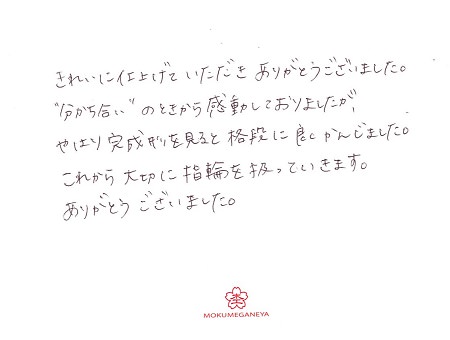 きれいに仕上げていただき ありがとうございました。
"分かち合い" のときから感動しておりましたが、
やはり完成形を見ると格段に良くかんじました。
これから大切に指輪を扱っていきます。
ありがとう ございました。
MOKUMEGANEYA